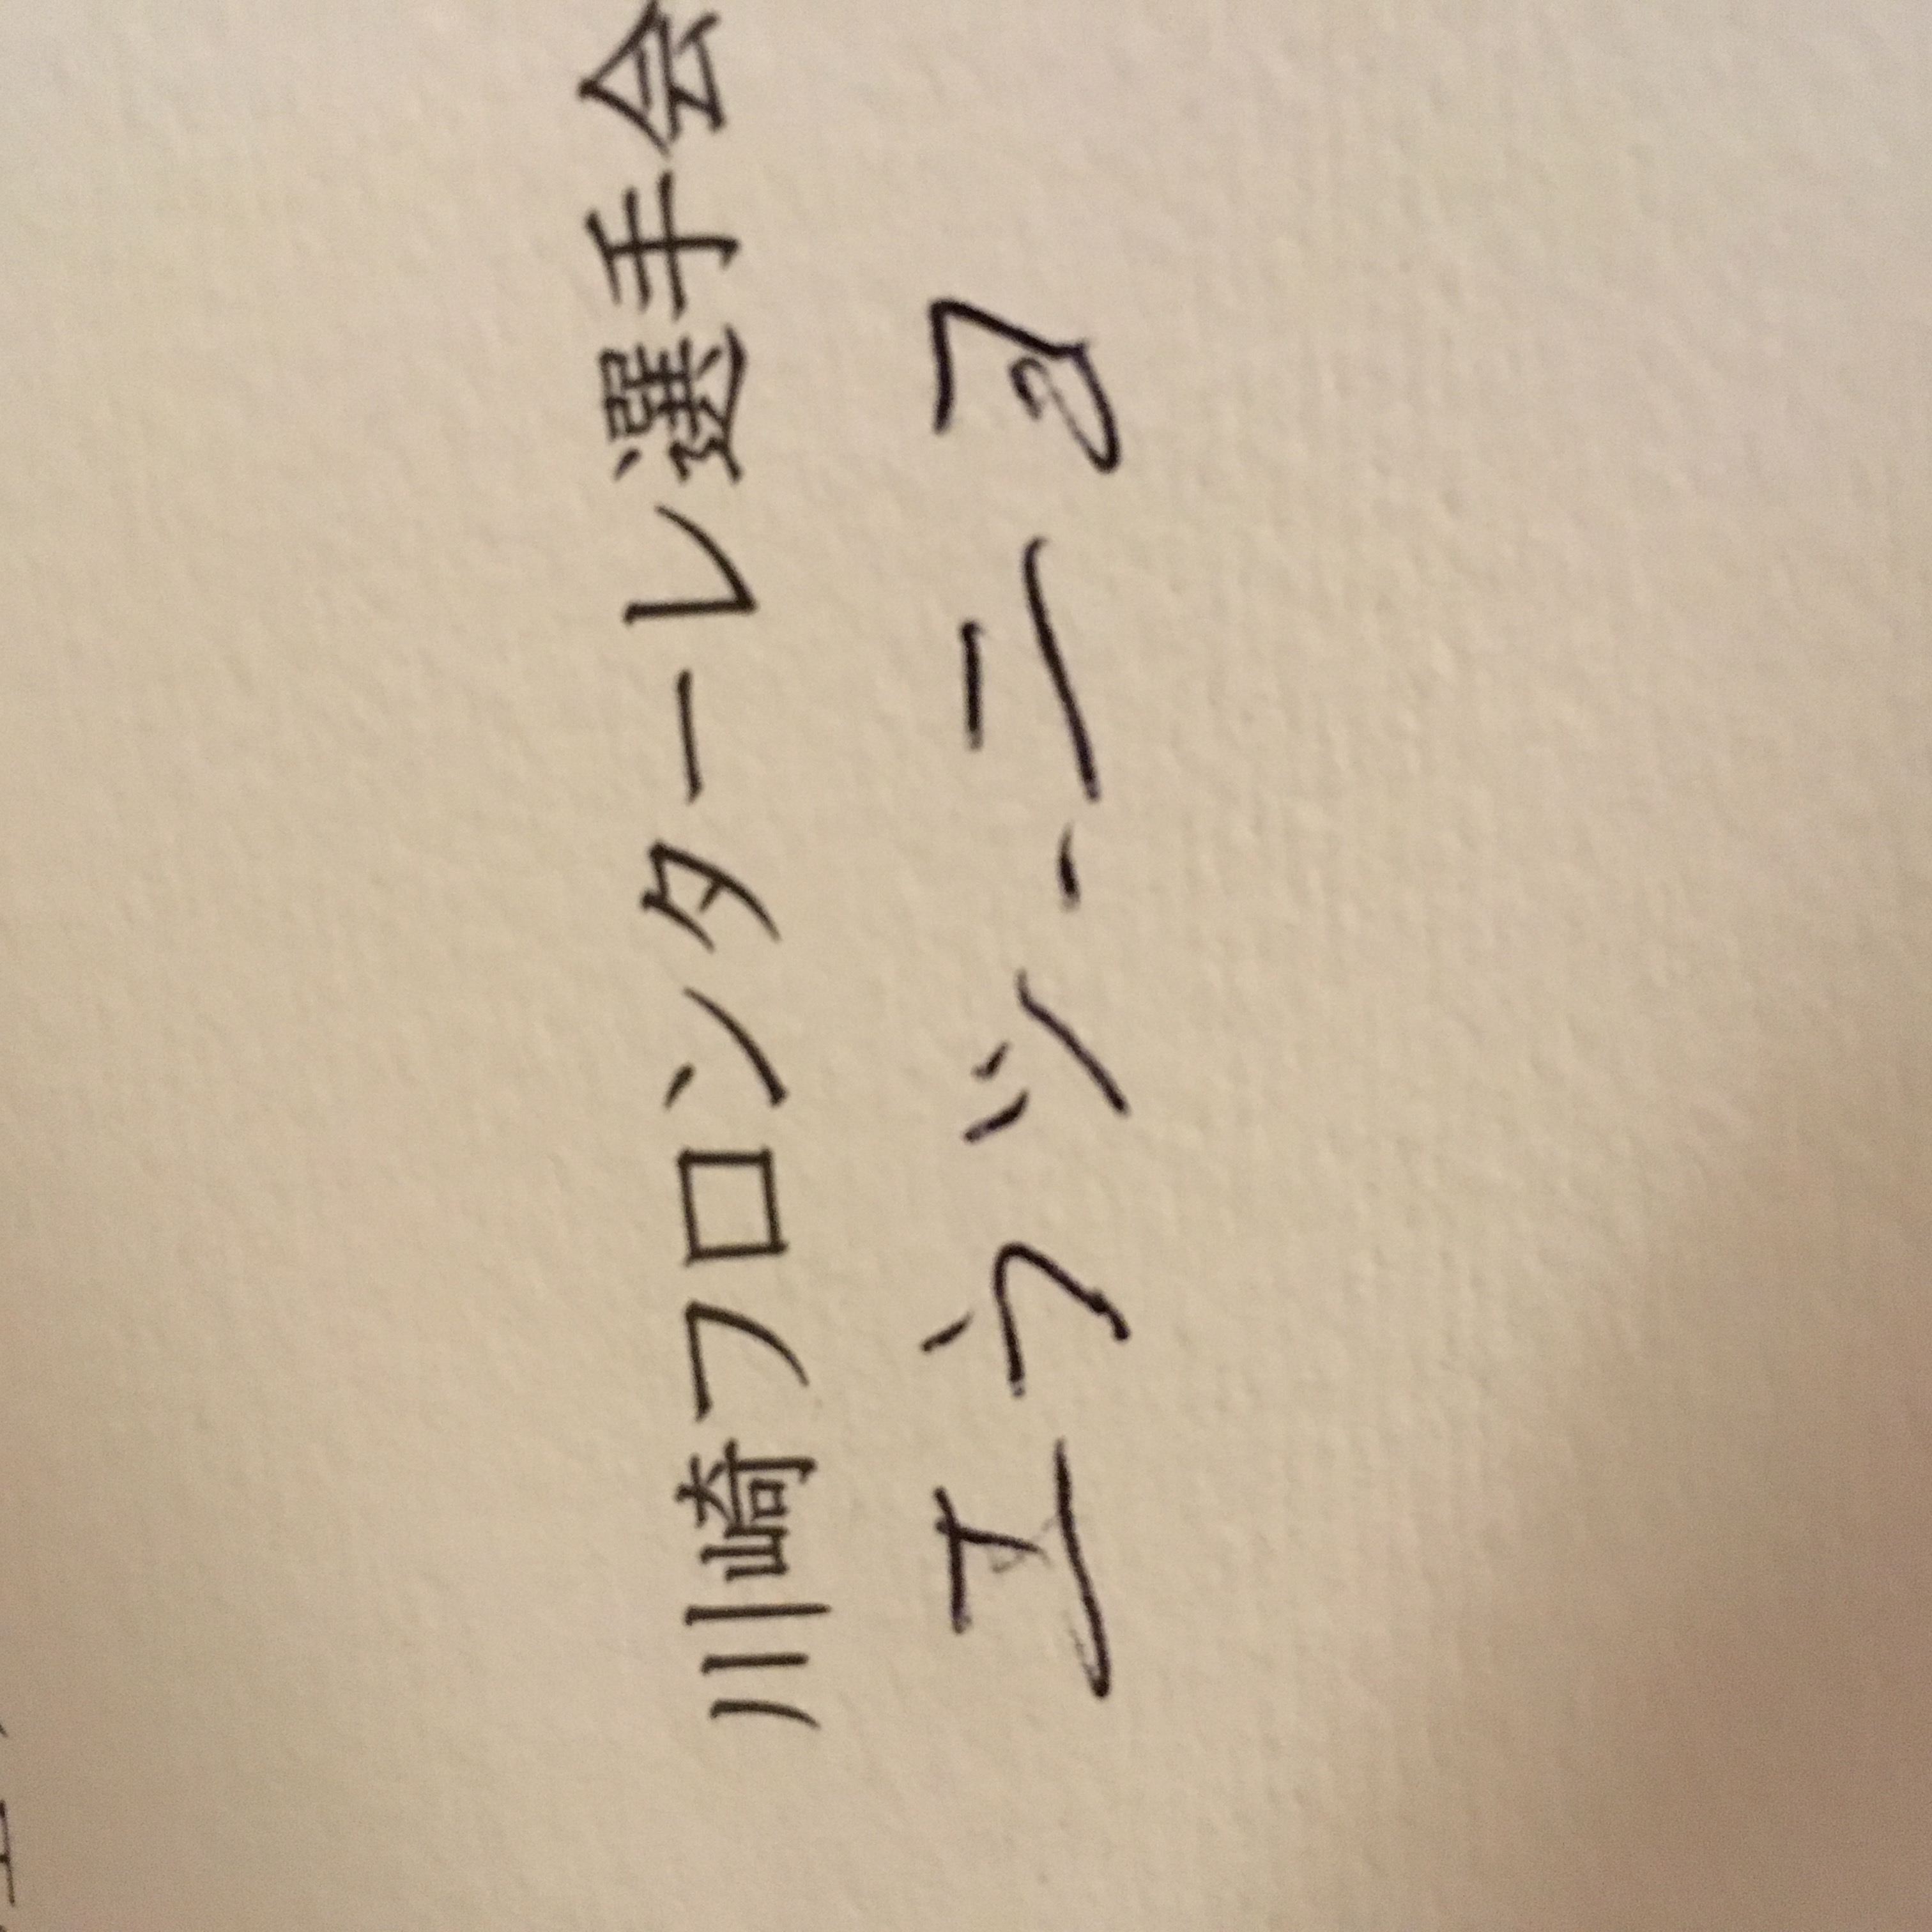 川崎フロンターレ選手会
エウシーニョ